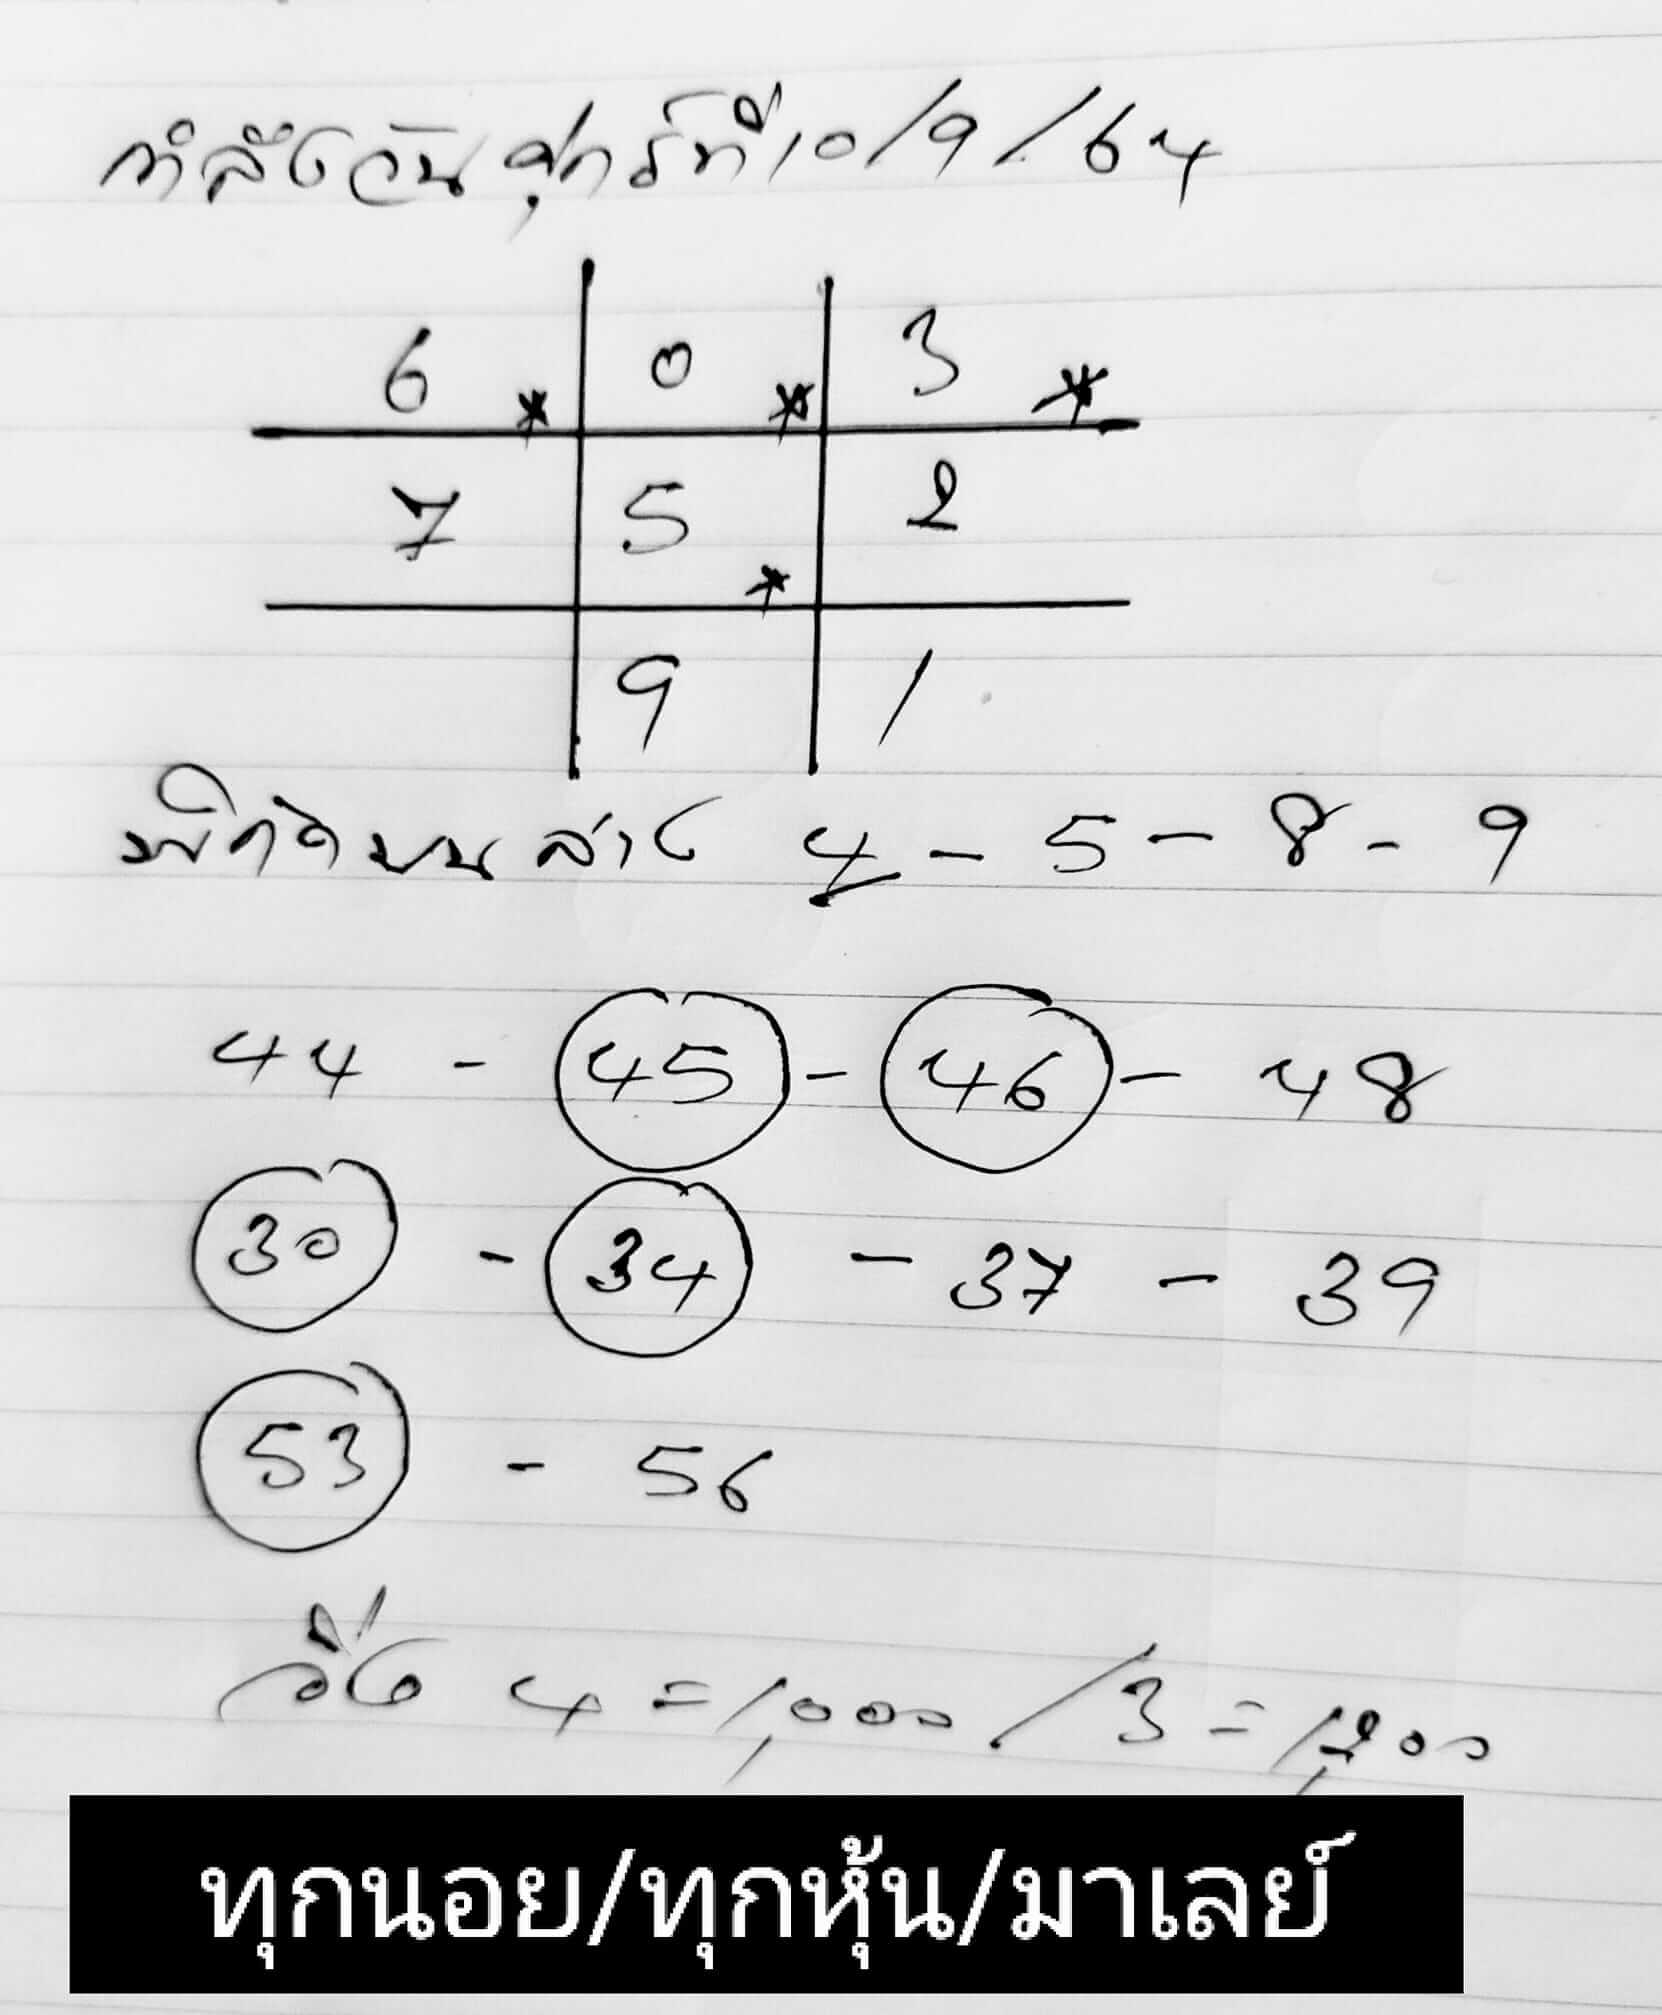 กำลังวันศุกร์ที่ 10/9/64
6 0 3
7 5 2
9 1
พิกัดบนล่าง 4 - 5 - 8 - 9
44 - 45 - 46 - 48
30 - 34 - 37 - 39
53 - 56
วิ่ง 4 = 1,000 / 3 = 1,200
ทุกนอย/ทุกหุ้น/มาเลย์